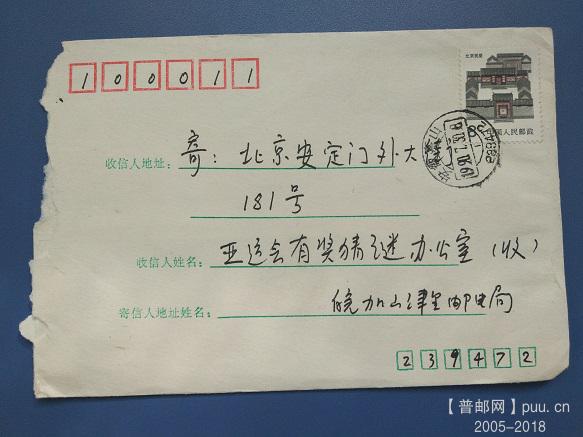 100011
北京民居
中国人民邮政
收信人地址: 寄: 北京安定门外大
181号
收信人姓名: 亚运会有奖猜谜办公室 (收)
寄信人地址姓名: 皖加山津里邮电局
239472
【普邮网】puu.cn
2005-2018